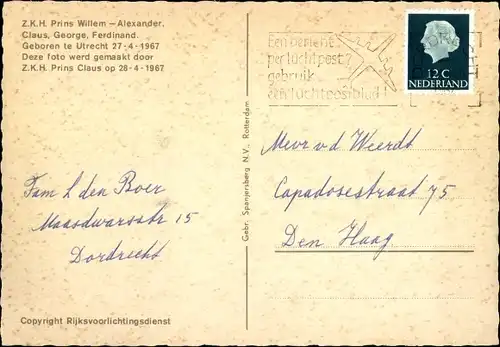 Z.K.H. Prins Willem-Alexander,
Claus, George, Ferdinand.
Geboren te Utrecht 27-4-1967
Deze foto werd gemaakt door
Z.K.H. Prins Claus op 28-4-1967
Een bericht?
per luchtpost?
gebruik
een luchtpostblad!
12 C
NEDERLAND
Gebr. Spanjersberg N.V., Rotterdam
Mevr v d Weerdt
Capadosestraat 75
Den Haag
Fam L den Boer
Maasdwarsstr 15
Dordrecht
Copyright Rijksvoorlichtingsdienst